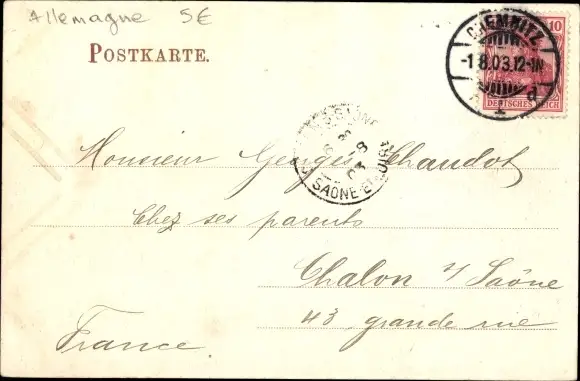 Allemagne 5€
POSTKARTE.
10
DEUTSCHES REICH
CHEMNITZ
-1.8.03.12-1N
d
SAONE-ET-LOIRE
Monsieur Georges Chaudot
Chez ses parents
Chalon s/ Saône
43 grande rue
France